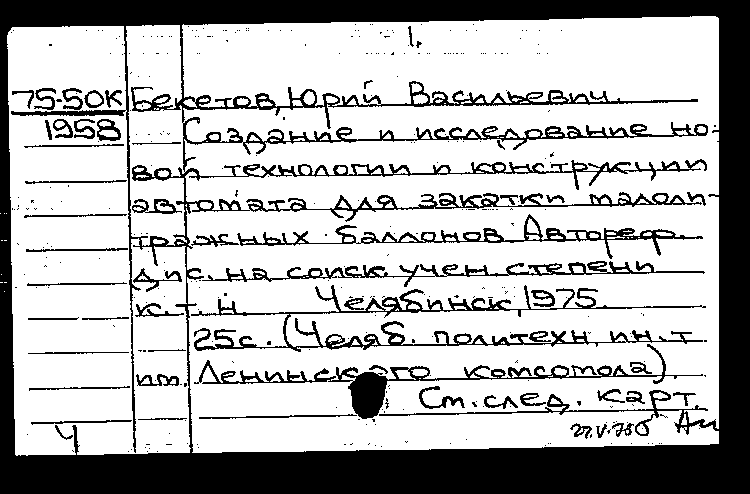 1.
75-50К Бекетов, Юрий Васильевич.
1958 Создание и исследование но-
вой технологии и конструкции
автомата для закатки малоли-
тражных баллонов. Автореф.
дис. на соиск. учен. степени
к. т. н. Челябинск, 1975.
25с. (Челяб. политехн. ин-т
им. Ленинского комсомола).
См. след. карт.
Ч